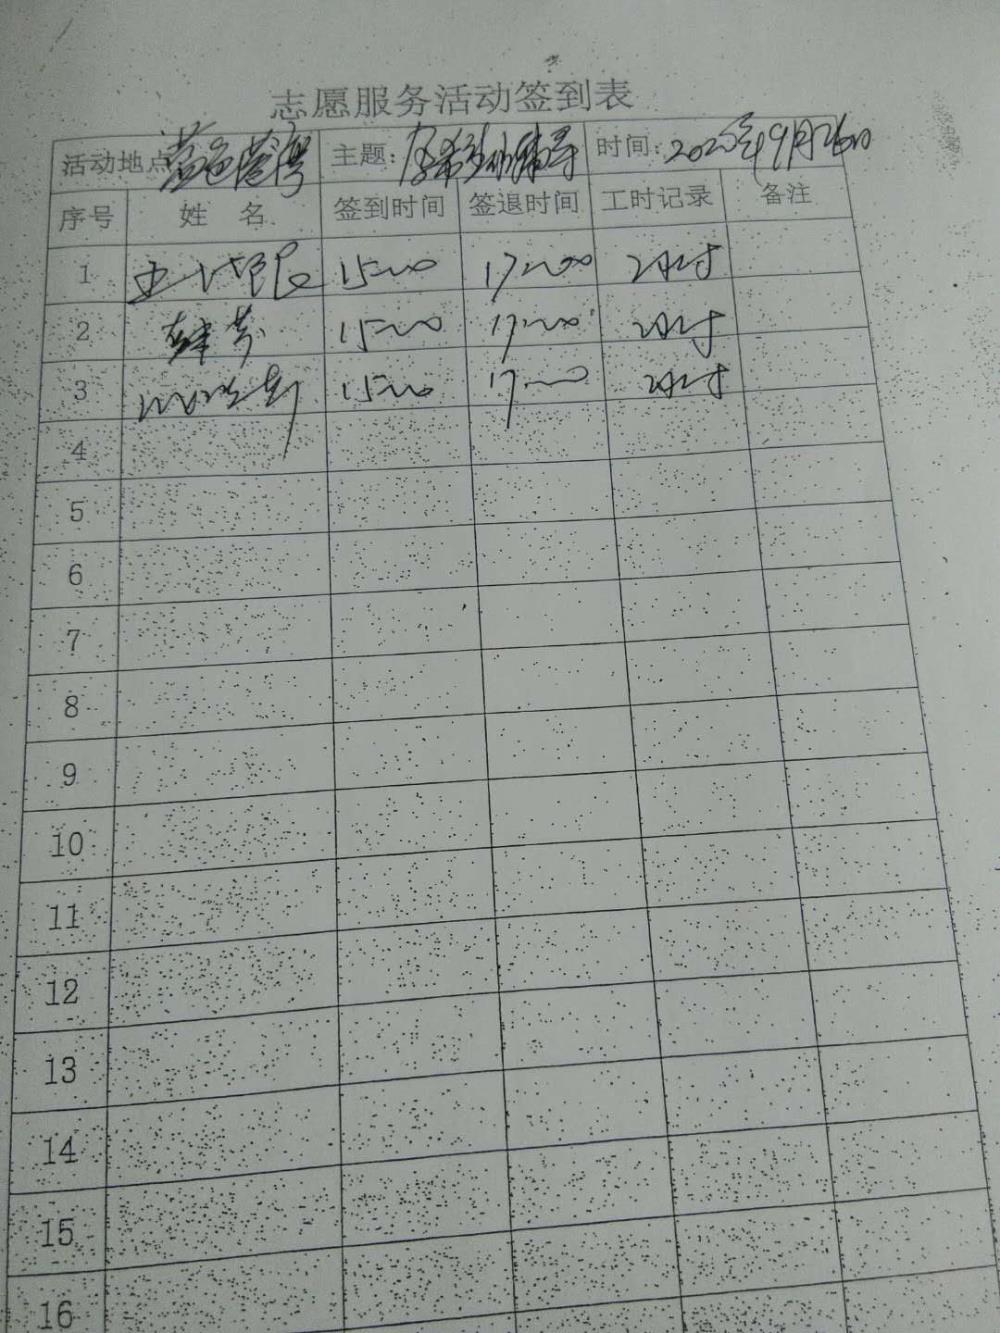 志愿服务活动签到表
活动地点 蓝色港湾 主题: 时间: 2020年9月26日
序号 姓 名 签到时间 签退时间 工时记录 备注
1 15:00 17:00 2小时
2 15:00 17:00 2小时
3 15:00 17:00 2小时
4
5
6
7
8
9
10
11
12
13
14
15
16